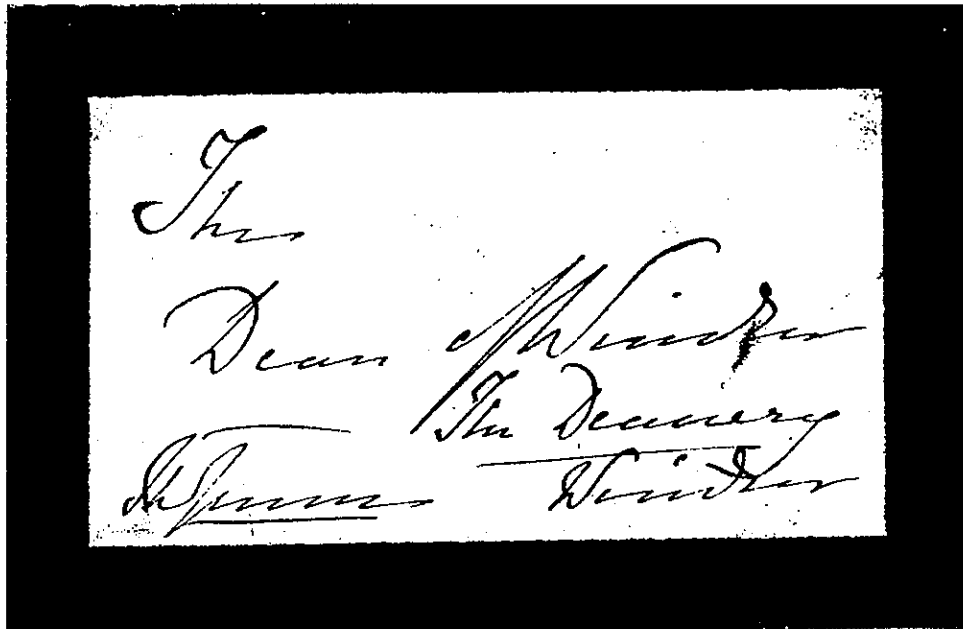 The
Dean of Windsor
The Deanery
Windsor